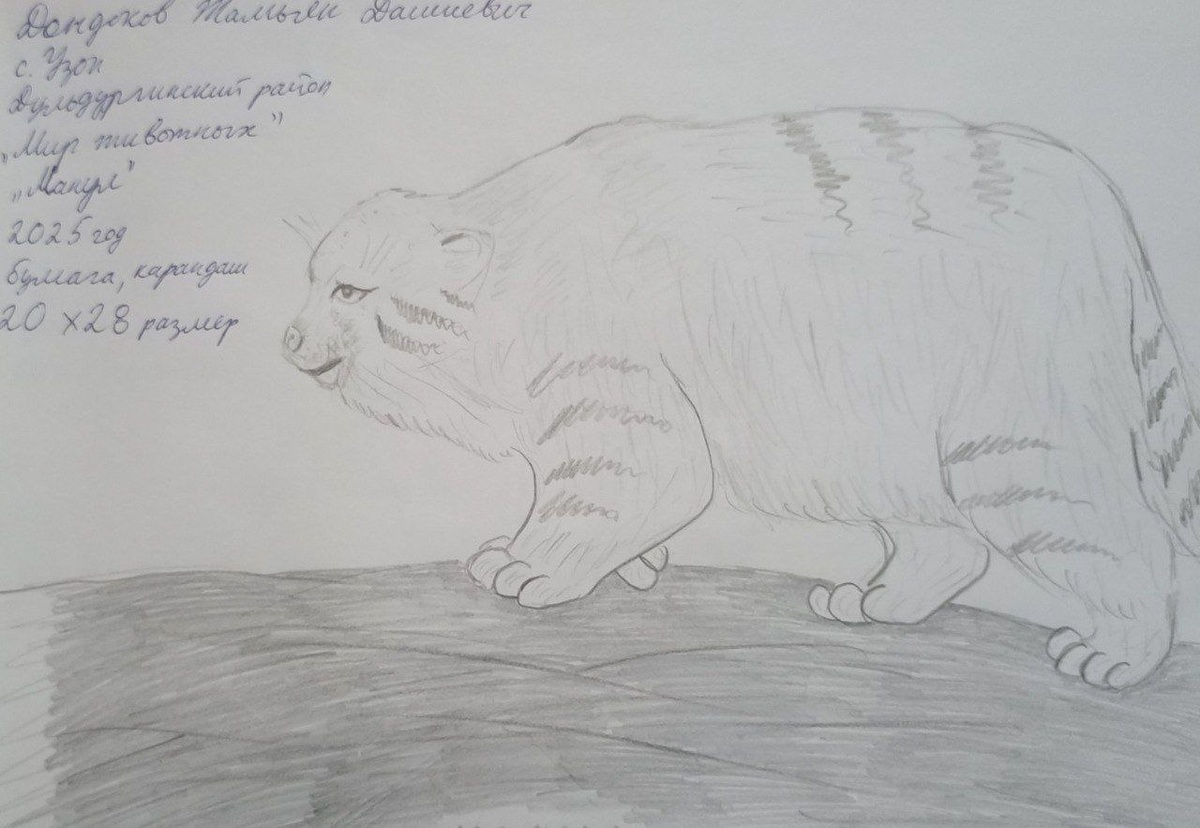 Дондоков Тамьян Дашиевич
с. Узон
Дульдургинский район
„Мир животных"
„Манул"
2025 год
бумага, карандаш
20 х28 размер